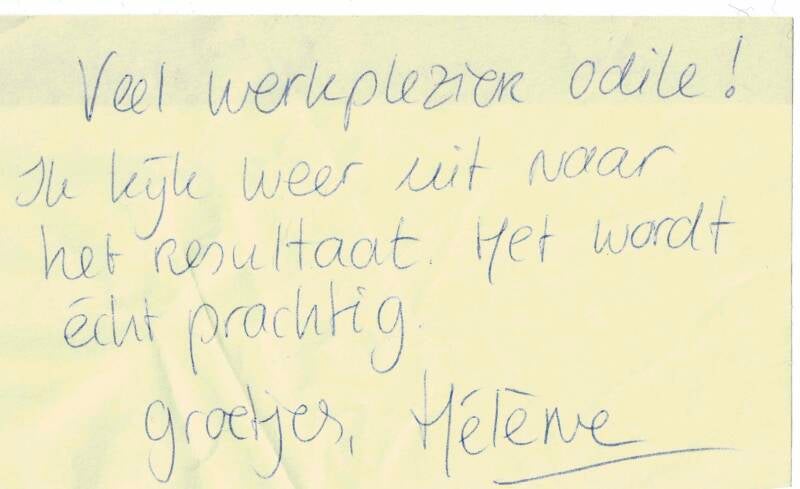 Veel werkplezier odile!
Ik kijk weer uit naar
het resultaat. Het wordt
écht prachtig.
groetjes, Hélène